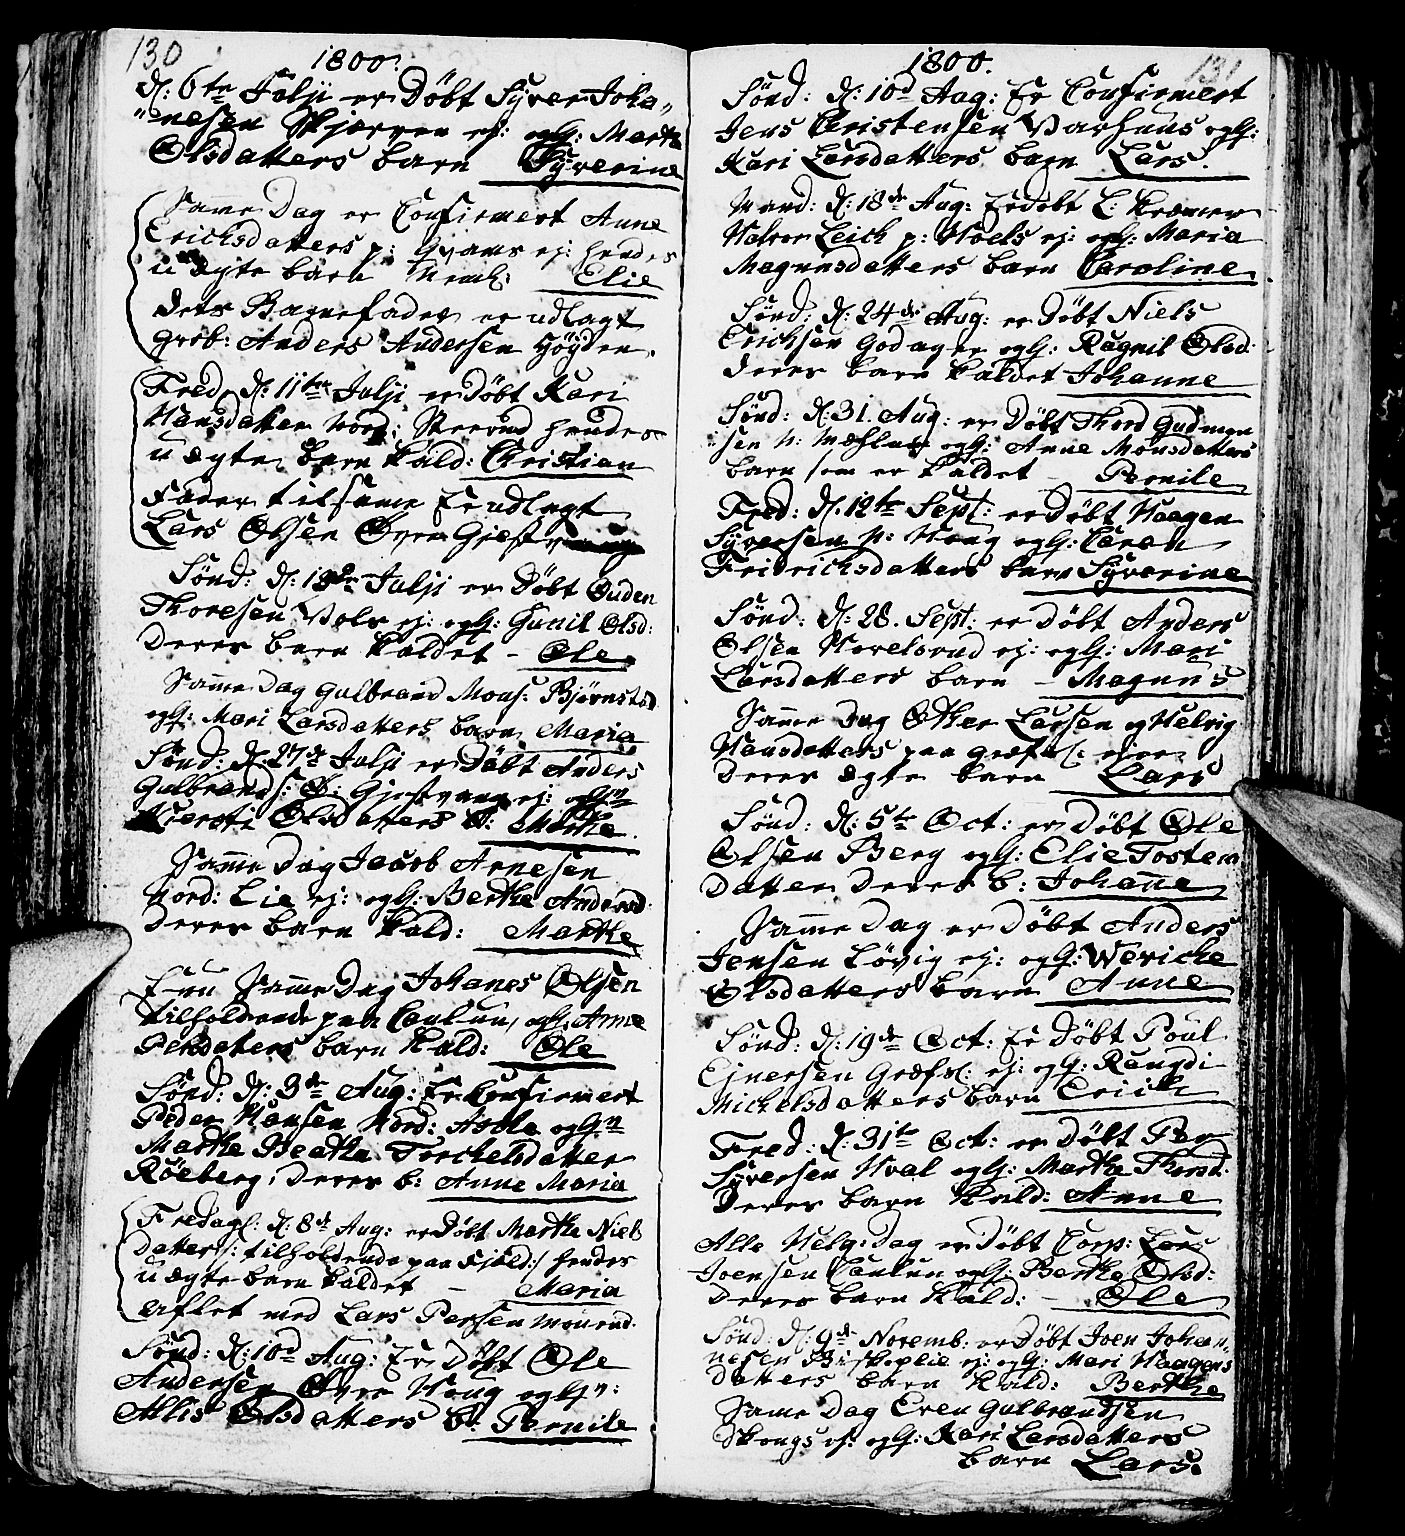 130
1800.
d: 6te Julji er Døbt Syver Joha-
-nesen Skjerven ej: og G: Marthe
Olsdatters barn Syverine
Samme Dag er Confirmert Anne
Erichsdatters p: Gvams ej: hendes
u ægte barn Neml: Elie
dets Barnefader er udlagt
Grb: Anders Andersen Høyden.
Fred: d: 11te Julji er Døbt Kari
Hansdatter Nord: hendes
u ægte barn kald: Christian
Fader til samme Er udlagt
Lars Olsen Øvre
Sönd: d: 13de Julji er Døbt Guden
Thoresen Vols ej: og G: Gunil Olsd:
Deres barn kaldet - Ole
Samme Dag Gulbrand Mons: Bjørnstad
og G: Mari Larsdatters barn Maria
Sönd: d: 27de Julji er Døbt Anders
Gulbrands: Ø: Gjestvang ej: og Gn
Kiersti Olsdatters B: Marthe.
Samme Dag Jacob Arnesen
Nord: Lie ej: og G: Berthe Andersd:
Deres barn kald: Marthe
Enu Samme Dag Johanes Olsen
tilholdende paa Caulun, og G: Anne
Persdatters barn kald: Ole
Sönd: d: 3de Aug: Er Confirmert
Peder Hansen Nord: og Gn
Marthe Beathe Torchelsdatter
Röeberg, Deres b: Anne Maria
Fredag: d: 8de Aug: er Døbt Marthe Niels
Datter /: tilholdende paa Fjæld :/ hendes
u ægte barn kaldet - Maria
aflet med Lars Persen
Sönd: d: 10d Aug: Er Døbt Ole
Andersen Øvre Houg og Gn:
Allis Olsdatters B: Pernile
131
1800.
Sönd: d: 10d Aug: Er Confirmert
Jens Christensen Varhuus og G:
Kari Larsdatters barn Lars.
Mand: d: 18de Aug: Er Døbt
Halvor Leich p: Hoels ej: og G: Maria
Magnusdatters barn Caroline
Sönd: d: 24de Aug: er Døbt Niels
Erichsen Godager og G: Ragnil Olsd:
Deres barn kaldet Johanne
Sönd: d: 31. Aug: er Døbt Thord Gudmun
-sen N: og G: Anne Monsdatters
barn som er kaldet - Pernile
Fred: d: 12te Sept: er Døbt Haagen
Syversen N: Houg og G: Caren
Fridrichsdatters barn Syverine
Sönd: d: 28. Sept: er Døbt Anders
Olsen Hovelsrud ej: og G: Mari
Larsdatters barn - Magnus
Samme Dag Other Larsen og Helvig
Hansdatters paa Græfs: ejer
Deres ægte barn Lars
Sönd: d: 5te Oct: er Døbt Ole
Olsen Berg og G: Elie Tosten
Datter Deres b: Johanne
Samme Dag er Døbt Anders
Jensen Løvig ej: og G: Wericke
Olsdatters barn Anne
Sönd: d: 19de Oct: Er Døbt Poul
Ejnersen Græfs: ej: og G: Rangdi
Michelsdatters barn Erich
Fred: d: 31te Oct: er Døbt Per
Syversen Hval og G: Marthe Thorsd:
Deres barn kald: Anne
Alle Helg: Dag er Døbt Corp: Lars
Joensen Caulun og G: Berthe Olsd:
Deres barn kald: - Ole
Sönd: d: 9de Novemb: er Døbt Joen Johan-
nesen Biskoplie ej: og G: Mari Haagens
datters barn kald: Berthe
Samme Dag Even Gulbrandsen
Skougs ej: og G: Kari Larsdatters
barn Lars.